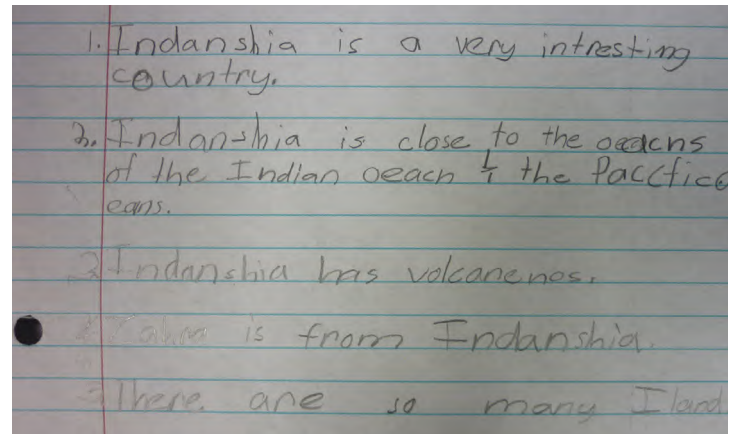 1. Indanshia is a very intresting
country.
3. Indanshia is close to the oeacns
of the Indian oeacn & the Paccfico
eans.
2 Indanshia has volcanenos.
is from Indanshia.
There are so many Iland